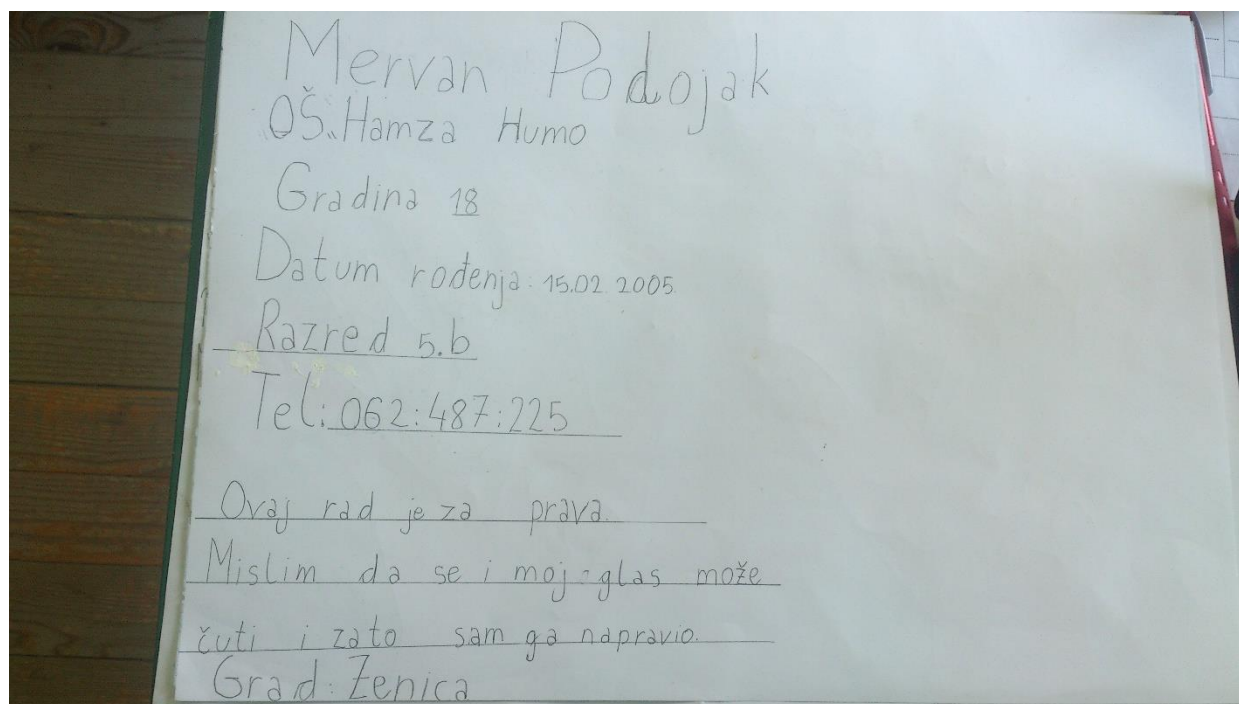 Mervan Podojak
OŠ."Hamza Humo
Gradina 18
Datum rođenja: 15.02.2005.
Razred 5.b
Tel: 062:487:225
Ovaj rad je za prava.
Mislim da se i moj glas može
čuti i zato sam ga napravio.
Grad: Zenica